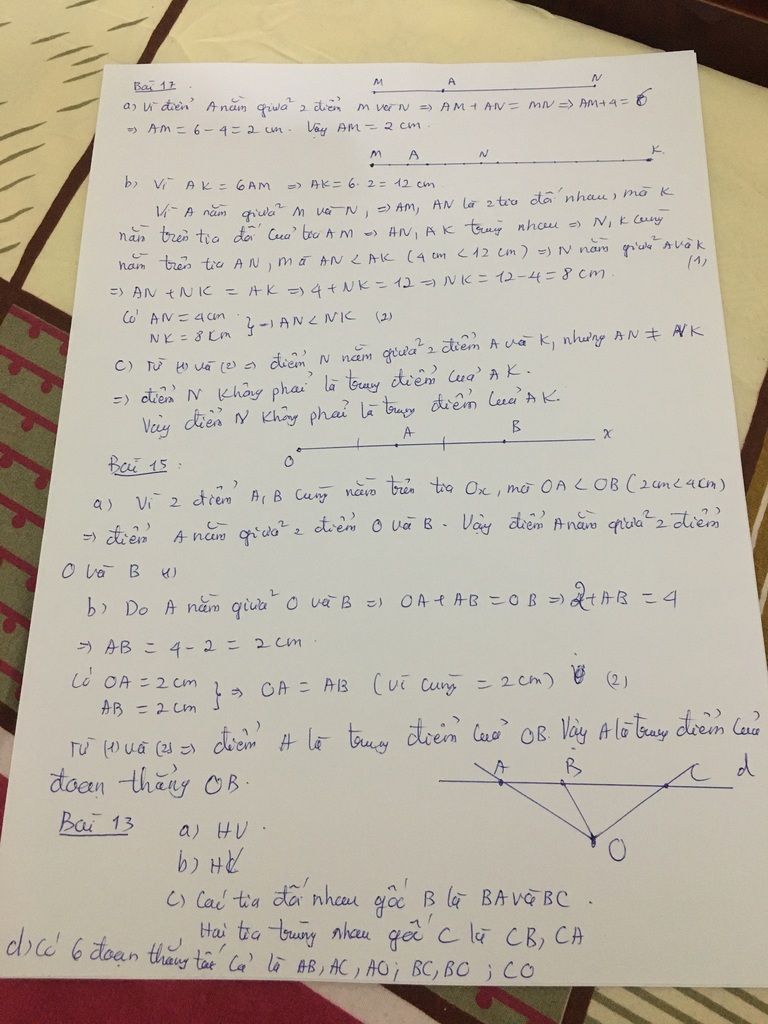 Bài 17
M A N
a) Vì điểm A nằm giữa 2 điểm M và N => AM + AN = MN => AM + 4 = 6
=> AM = 6 - 4 = 2 cm. Vậy AM = 2 cm.
M A N K
b) Vì AK = 6AM => AK = 6 . 2 = 12 cm
Vì A nằm giữa M và N, => AM, AN là 2 tia đối nhau, mà K
nằm trên tia đối của tia AM => AN, AK trùng nhau => N, K cùng
nằm trên tia AN, mà AN < AK (4 cm < 12 cm) => N nằm giữa A và K
(1)
=> AN + NK = AK => 4 + NK = 12 => NK = 12 - 4 = 8 cm.
Có AN = 4 cm
NK = 8 cm } => AN < NK (2)
c) Từ (1) và (2) => điểm N nằm giữa 2 điểm A và K, nhưng AN ≠ NK
=> điểm N không phải là trung điểm của AK.
Vậy điểm N không phải là trung điểm của AK.
O A B x
Bài 15
a) Vì 2 điểm A, B cùng nằm trên tia Ox, mà OA < OB (2cm < 4cm)
=> điểm A nằm giữa 2 điểm O và B. Vậy điểm A nằm giữa 2 điểm
O và B (1)
b) Do A nằm giữa O và B => OA + AB = OB => 2 + AB = 4
=> AB = 4 - 2 = 2 cm.
Có OA = 2 cm
AB = 2 cm } => OA = AB (vì cùng = 2 cm) (2)
Từ (1) và (2) => điểm A là trung điểm của OB. Vậy A là trung điểm của
đoạn thẳng OB.
A B C d
O
Bài 13
a) HV
b) HV
c) Các tia đối nhau gốc B là BA và BC.
Hai tia trùng nhau gốc C là CB, CA
d) Có 6 đoạn thẳng tất cả là AB, AC, AO; BC, BO; CO